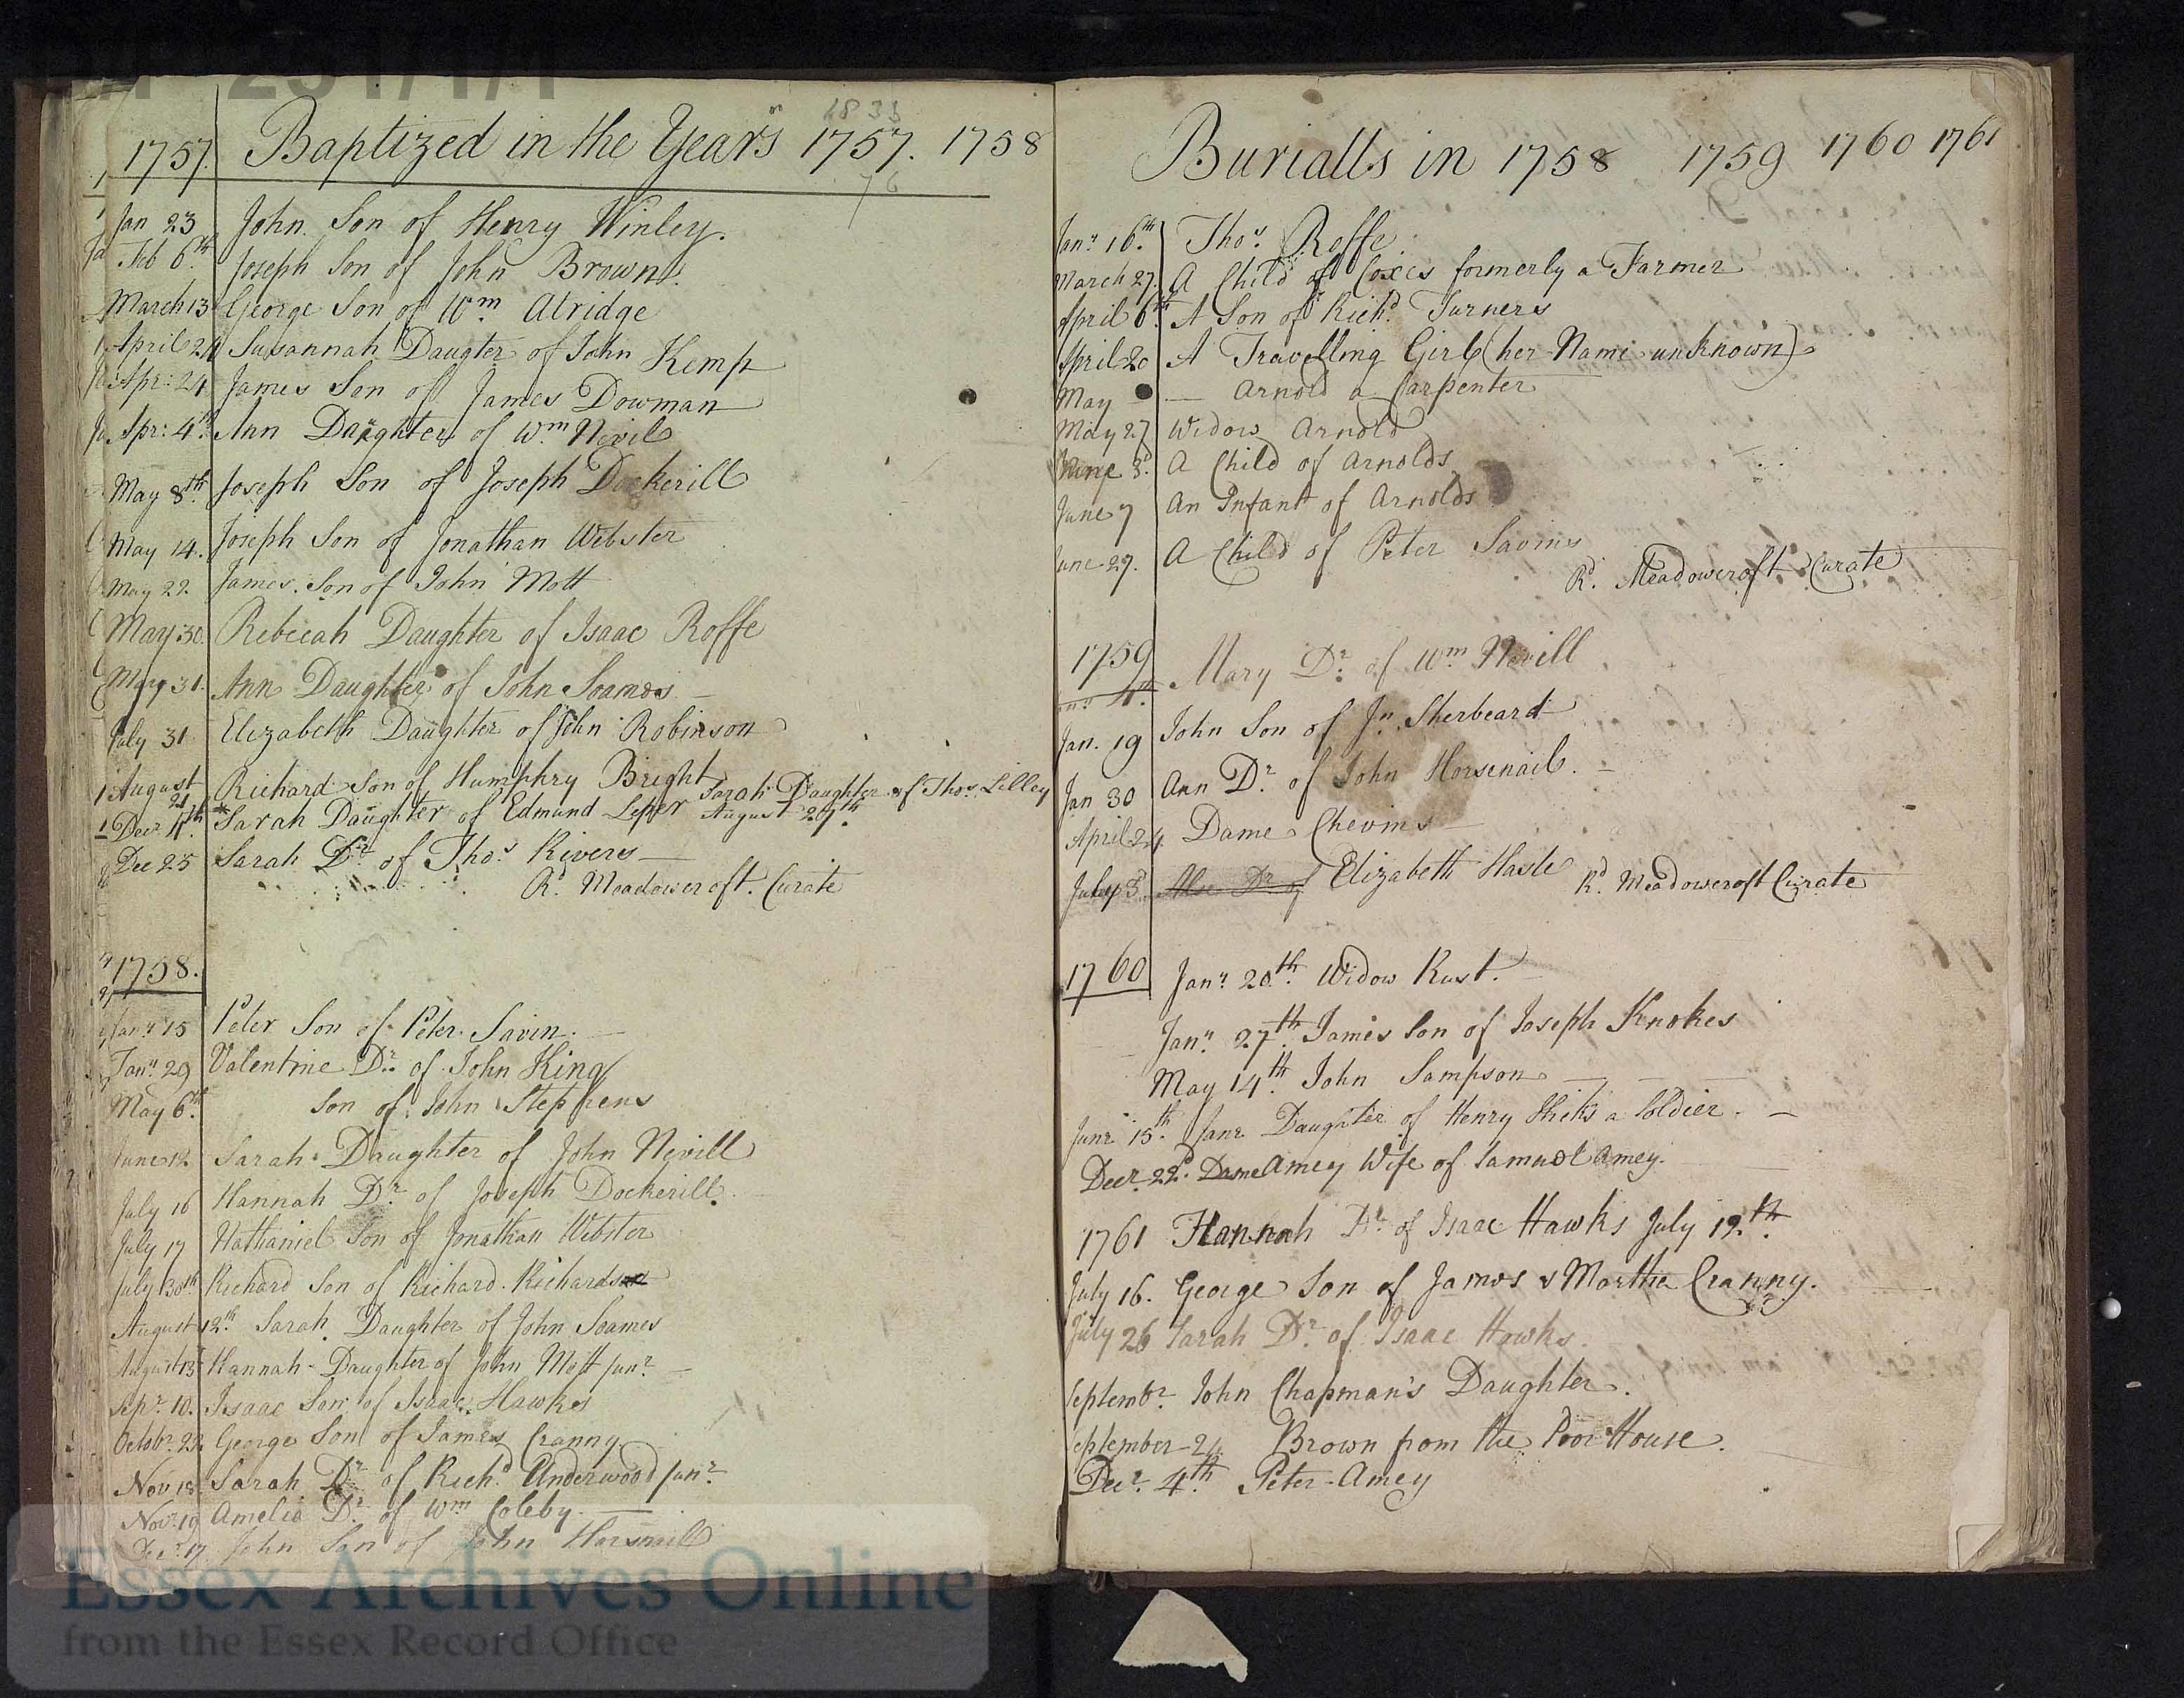 1833
1757. Baptized in the Years 1757. 1758
76
Jan 23 John Son of Henry Winley.
Feb 6th Joseph Son of John Brown.
March 13 George Son of Wm Atridge
April 24 Susannah Daugter of John Kemp
Apr: 24 James Son of James Dowman
Apr: 4th Ann Daughter of Wm Nevil
May 8th Joseph Son of Joseph Dockerill
May 14. Joseph Son of Jonathan Webster
May 22. James Son of John Mott
May 30. Rebecah Daughter of Isaac Roffe
May 31. Ann Daughter of John Soames
July 31 Elizabeth Daughter of John Robinson
August 21 Richard Son of Humphry Bright Sarah Daughter of Thos. Lilley August 29th.
Decr 4th *Sarah Daughter of Edmund Leper
Dec 25 Sarah Dr. of Thos. Rivers
Rd. Meadowcroft. Curate
1758.
Janry 15 Peter Son of Peter Savin.
Janry 29 Valentine Dr. of John King
May 6th. Son of John Stephens
June 12 Sarah Daughter of John Nevill
July 16 Hannah Dr. of Joseph Dockerill.
July 17 Nathaniel Son of Jonathan Webster
July 30th Richard Son of Richard Richardson
August 12th. Sarah Daughter of John Soames
August 13 Hannah Daughter of John Mott junr.
Sepr. 10. Isaac Son of Isaac Hawkes
Octobr. 22 George Son of James Cranny
Nov 18 Sarah Dr. of Richd. Underwood Junr.
Novr. 19 Amelia Dr. of Wm Coleby
Decr. 17 John Son of John Horsnaill
Burialls in 1758 1759 1760 1761
Janry 16th. Thos. Roffe
March 27. A Child of Coxes formerly a Farmer
April 6th. A Son of Richd. Turners
April 20 A Travelling Girl (her Name unknown)
May — Arnold a Carpenter
May 27 Widow Arnold
June 3d. A Child of Arnolds
June 7 An Infant of Arnolds
June 27. A Child of Peter Savins
Rd. Meadowcroft Curate
1759
Janry 4th. Mary Dr. of Wm Nevill
Jan. 19 John Son of Jn. Sherbeard
Jan 30 Ann Dr. of John Horsenail.
April 24 Dame Chevins
July 3d. Elizabeth Hasle Rd. Meadowcroft Curate
1760 Janry 20th. Widow Rust.
Janry 27th. James Son of Joseph Knokes
May 14th. John Sampson
June 15th. Jane Daughter of Henry a Soldier.
Decr. 22d. Dame Amey Wife of Samuel Amey.
1761 Hannah Dr. of Isaac Hawks July 12th.
July 16. George Son of James & Martha Cranny.
July 26 Sarah Dr. of Isaac Hawks.
Septembr. John Chapman's Daughter.
September 24 Brown from the Poor House.
Decr. 4th. Peter Amey
Essex Archives Online
from the Essex Record Office